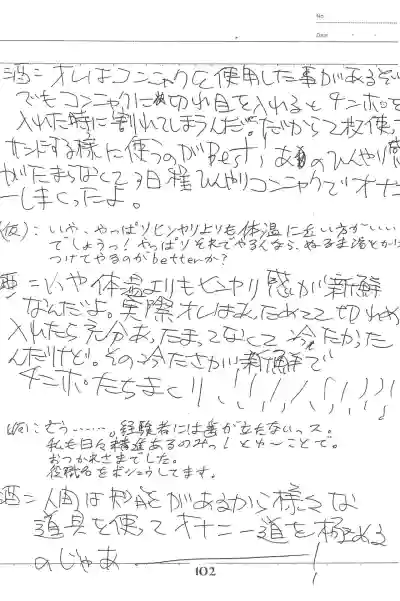 No.
Date
酒＝オレはコンニャクを使用した事があるぞい
でもコンニャクに切れ目を入れるとチンポを
入れた時に割れてしまうんだ。だから2枚使って
サンドする様に使うのがBest!あのひんやり感
がたまらなくて3日程ひんやりコンニャクでオナニ
ーしまくったよ。
(仮)：いや、やっぱりヒンヤリよりも体温に近い方がいい
でしょうっ!やっぱりそれでやるくなら、ぬるま湯とかに
つけてやるのがbetterか?
酒＝いや体温よりもヒンヤリ感が新鮮
なんだよ。実際オレはあたためて切れめ
入れたら充分あったまってなくて冷たかった
んだけど。その冷たさが新鮮で
チンポたちまくり!!!!!!!!!!
(仮)：そう……。経験者には歯が立たないっス。
私も日々精進あるのみっ!とゆーことで。
おつかれさまでした。
役職名をボシュウしてます。
酒＝人間は知能があるから様々な
道具を使ってオナニー道を極める
のじゃあ――――!
102